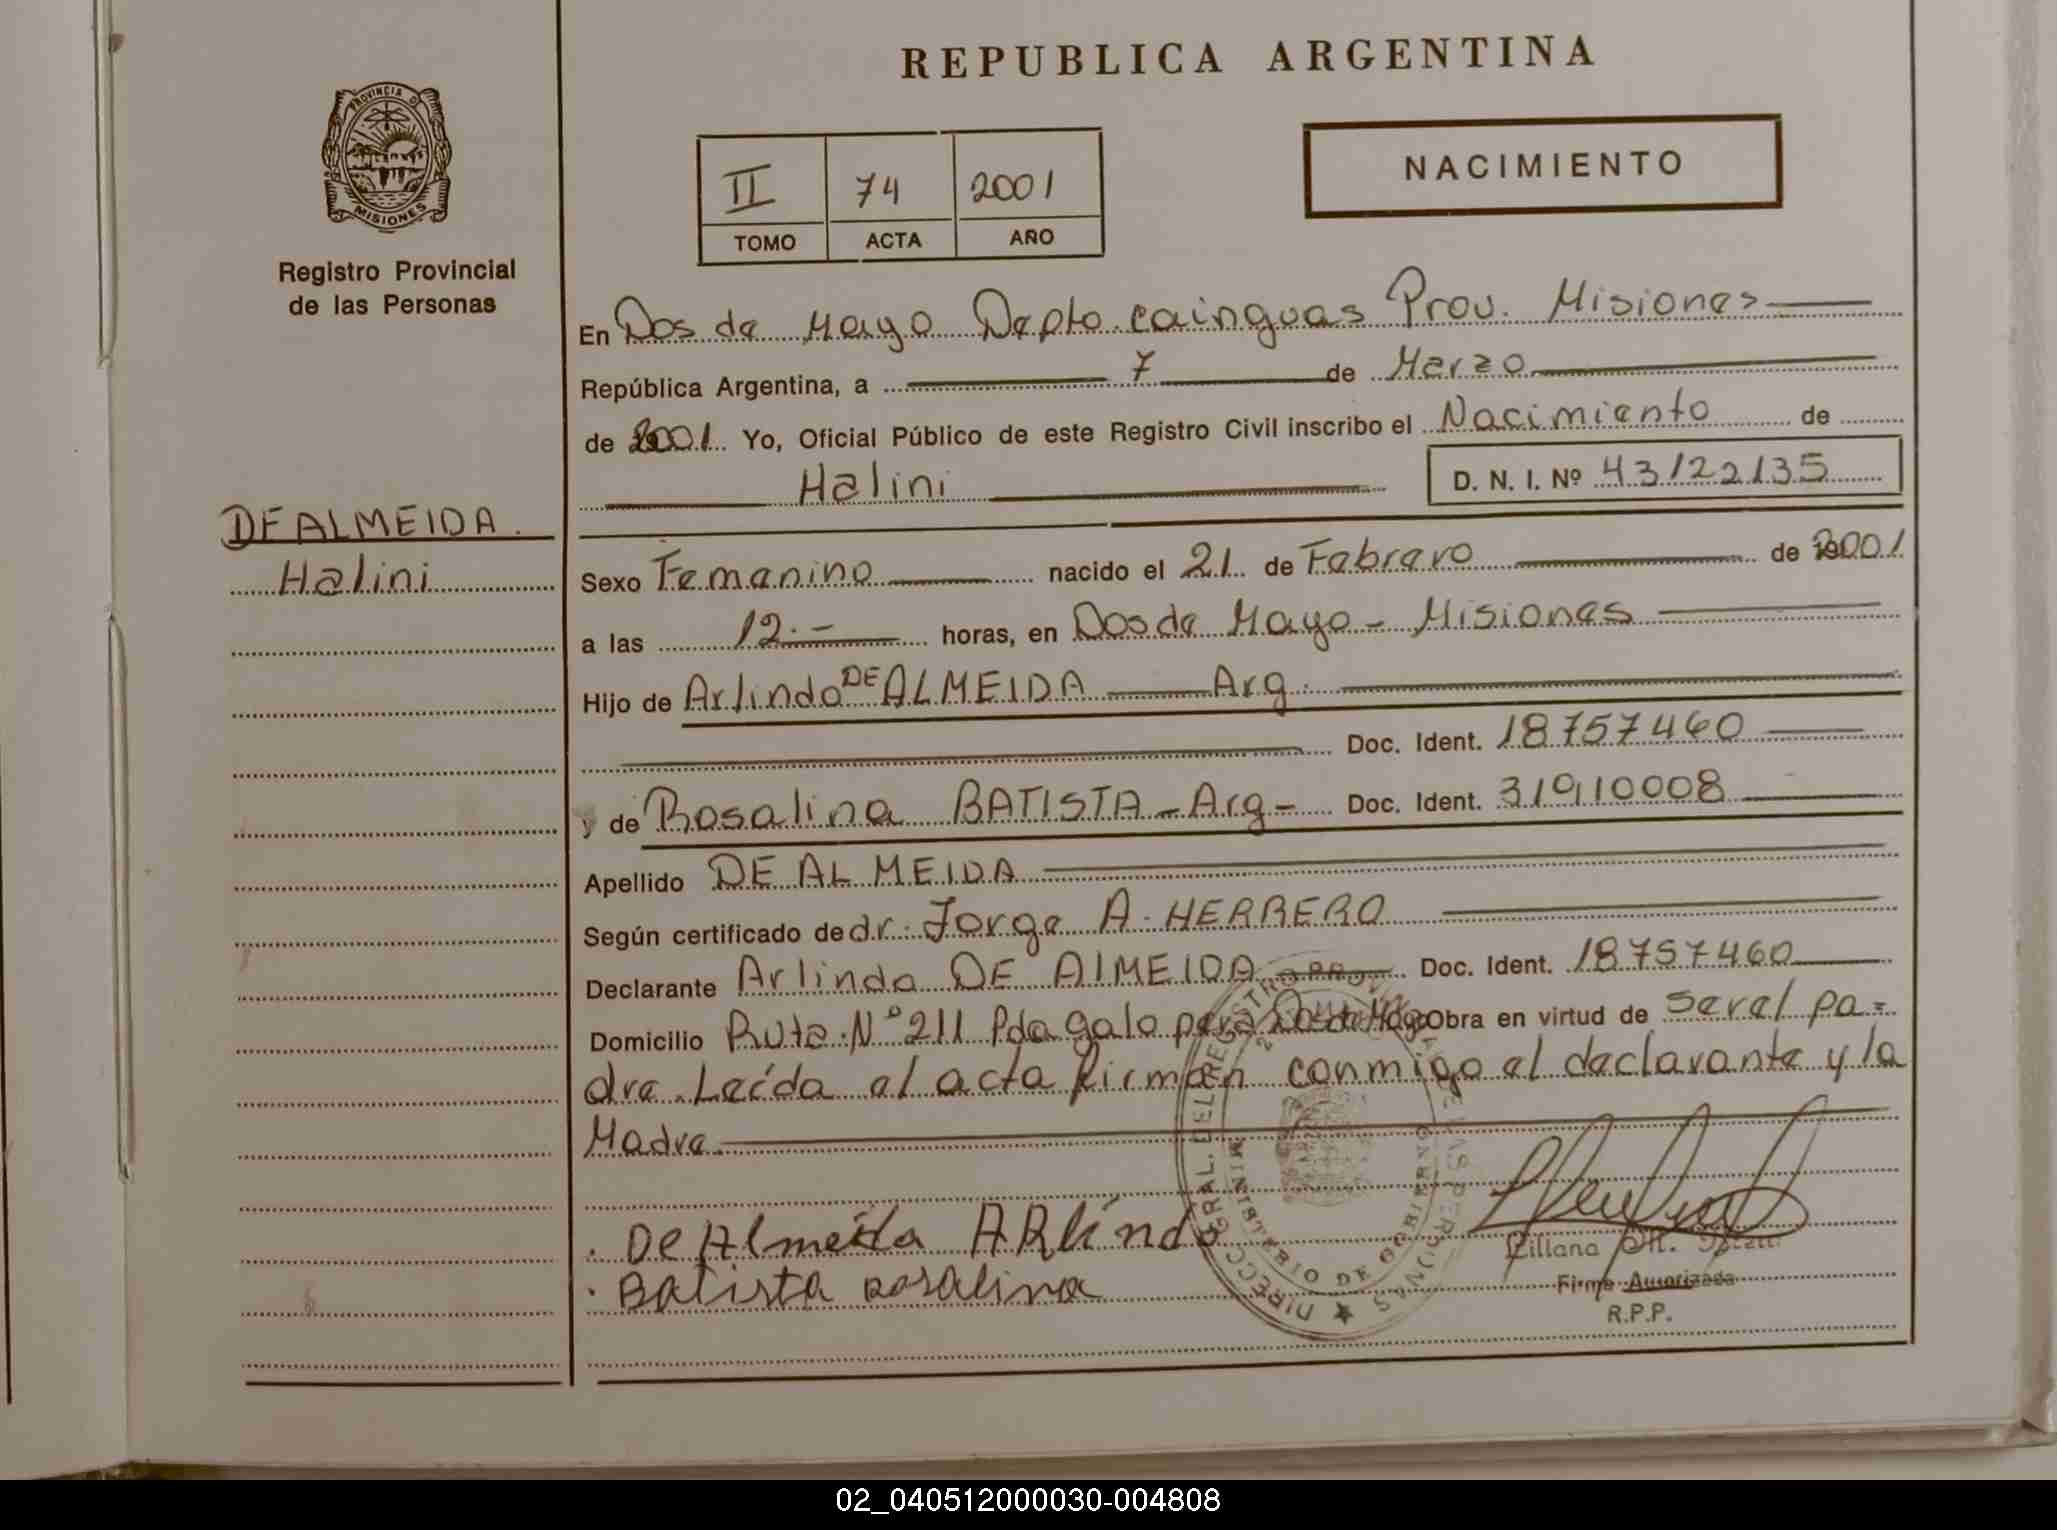 REPUBLICA ARGENTINA
PROVINCIA DE
MISIONES
Registro Provincial
de las Personas
II 74 2001
TOMO ACTA AÑO
NACIMIENTO
En Dos de Mayo Depto. cainguas Prov. Misiones
República Argentina, a 7 de Marzo
de 2001 Yo, Oficial Público de este Registro Civil inscribo el Nacimiento de
Halini D. N. I. Nº 43122135
DE ALMEIDA.
Halini
Sexo Femenino nacido el 21 de Febrero de 2001
a las 12.- horas, en Dos de Mayo - Misiones
Hijo de Arlindo DE ALMEIDA Arg.
Doc. Ident. 18757460
y de Rosalina BATISTA - Arg - Doc. Ident.
Apellido DE ALMEIDA
Según certificado de dr. Jorge A. HERRERO
Declarante Arlindo DE AlMEIDA Doc. Ident. 18757460
Domicilio Ruta Nº 211 Pda galo Obra en virtud de ser el pa=
dre. Leída el acta firman conmigo el declarante y la
Madre.
De Almeida ARlindo
Batista rosalina
DIRECC. GRAL. DEL REGISTRO PROV. DE LAS PERSONAS
MINISTERIO DE GOBIERNO
Firma Autorizada
R.P.P.
02_040512000030-004808